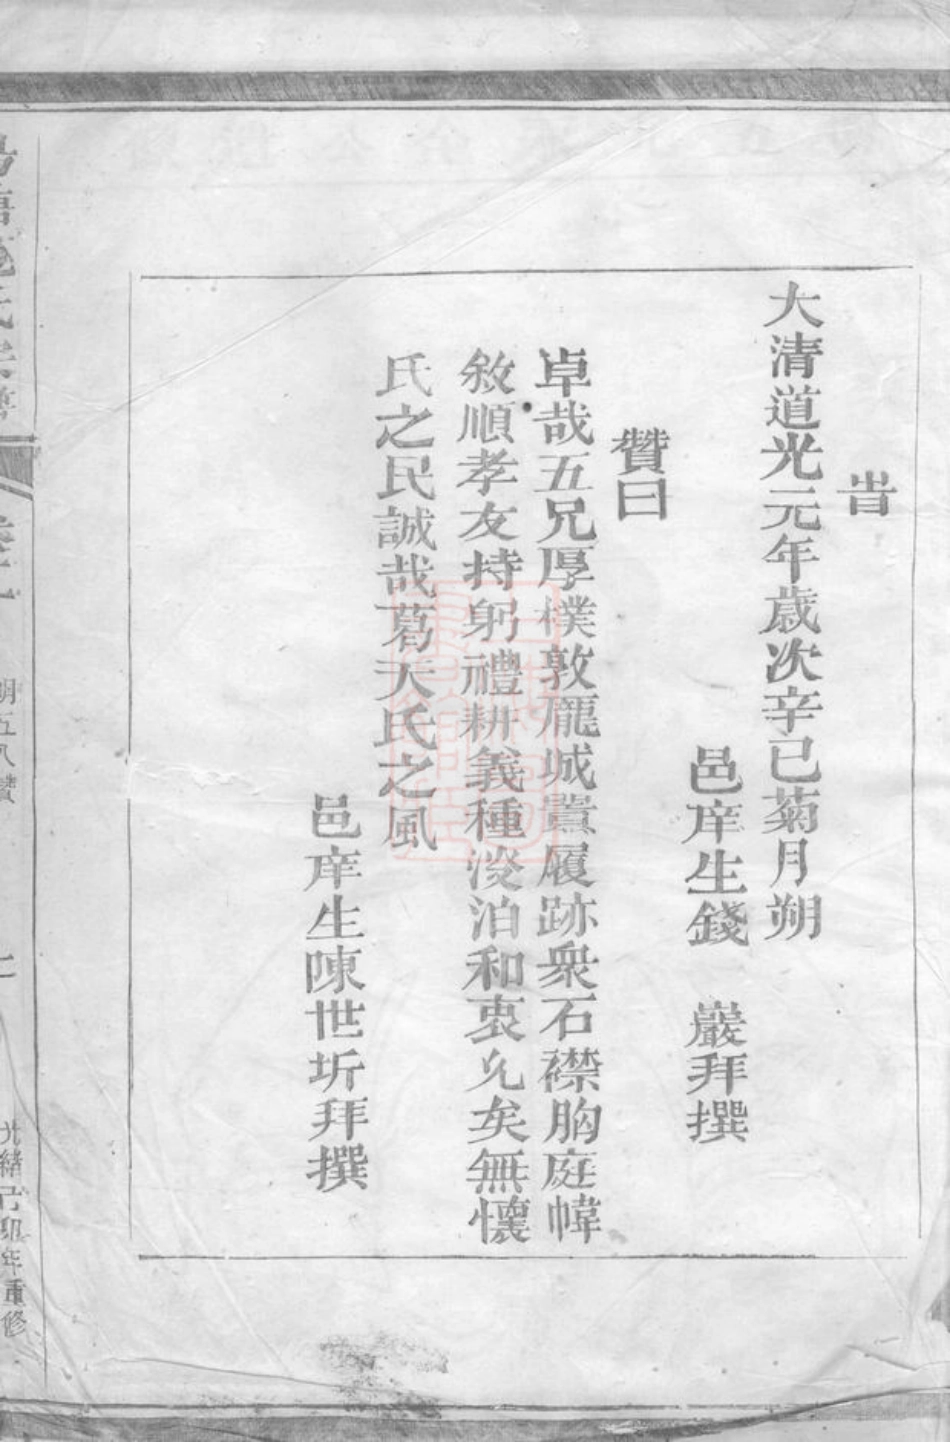 旹
大清道光元年歲次辛巳菊月朔
邑庠生錢　巖拜撰
贊曰
卓哉五兄厚樸敦龐城嵩履跡衆石襟胸庭幃
敘順孝友持躬禮耕義種淡泊和衷允矣無懷
氏之民誠哉葛天氏之風
邑庠生陳世圻拜撰
氏宗譜
明五八贊
光緒己卯年重修